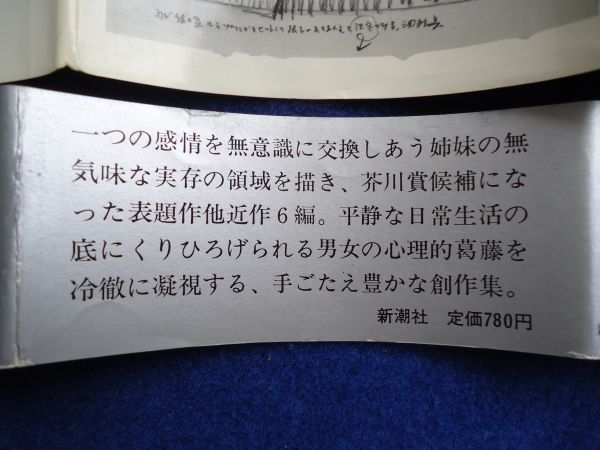 一つの感情を無意識に交換しあう姉妹の無
気味な実存の領域を描き、芥川賞候補にな
った表題作他近作6編。平静な日常生活の
底にくりひろげられる男女の心理的葛藤を
冷徹に凝視する、手ごたえ豊かな創作集。
新潮社 定価780円